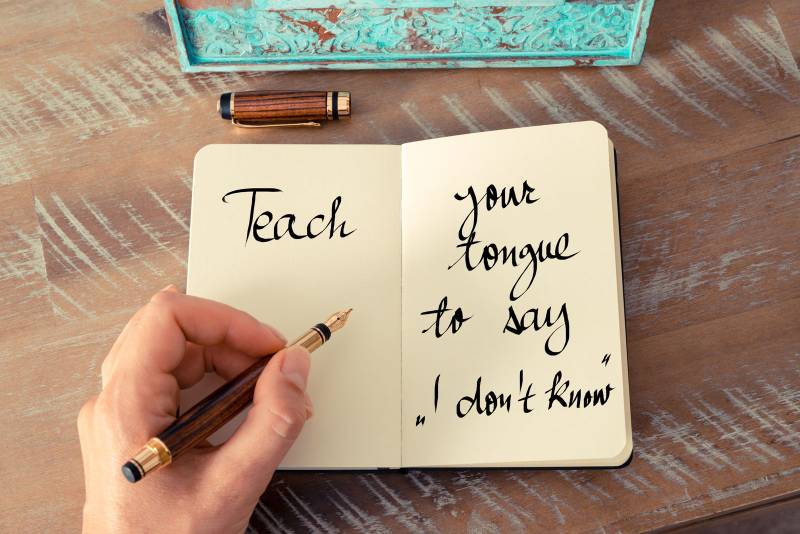 Teach
your
tongue
to say
„I don't know"